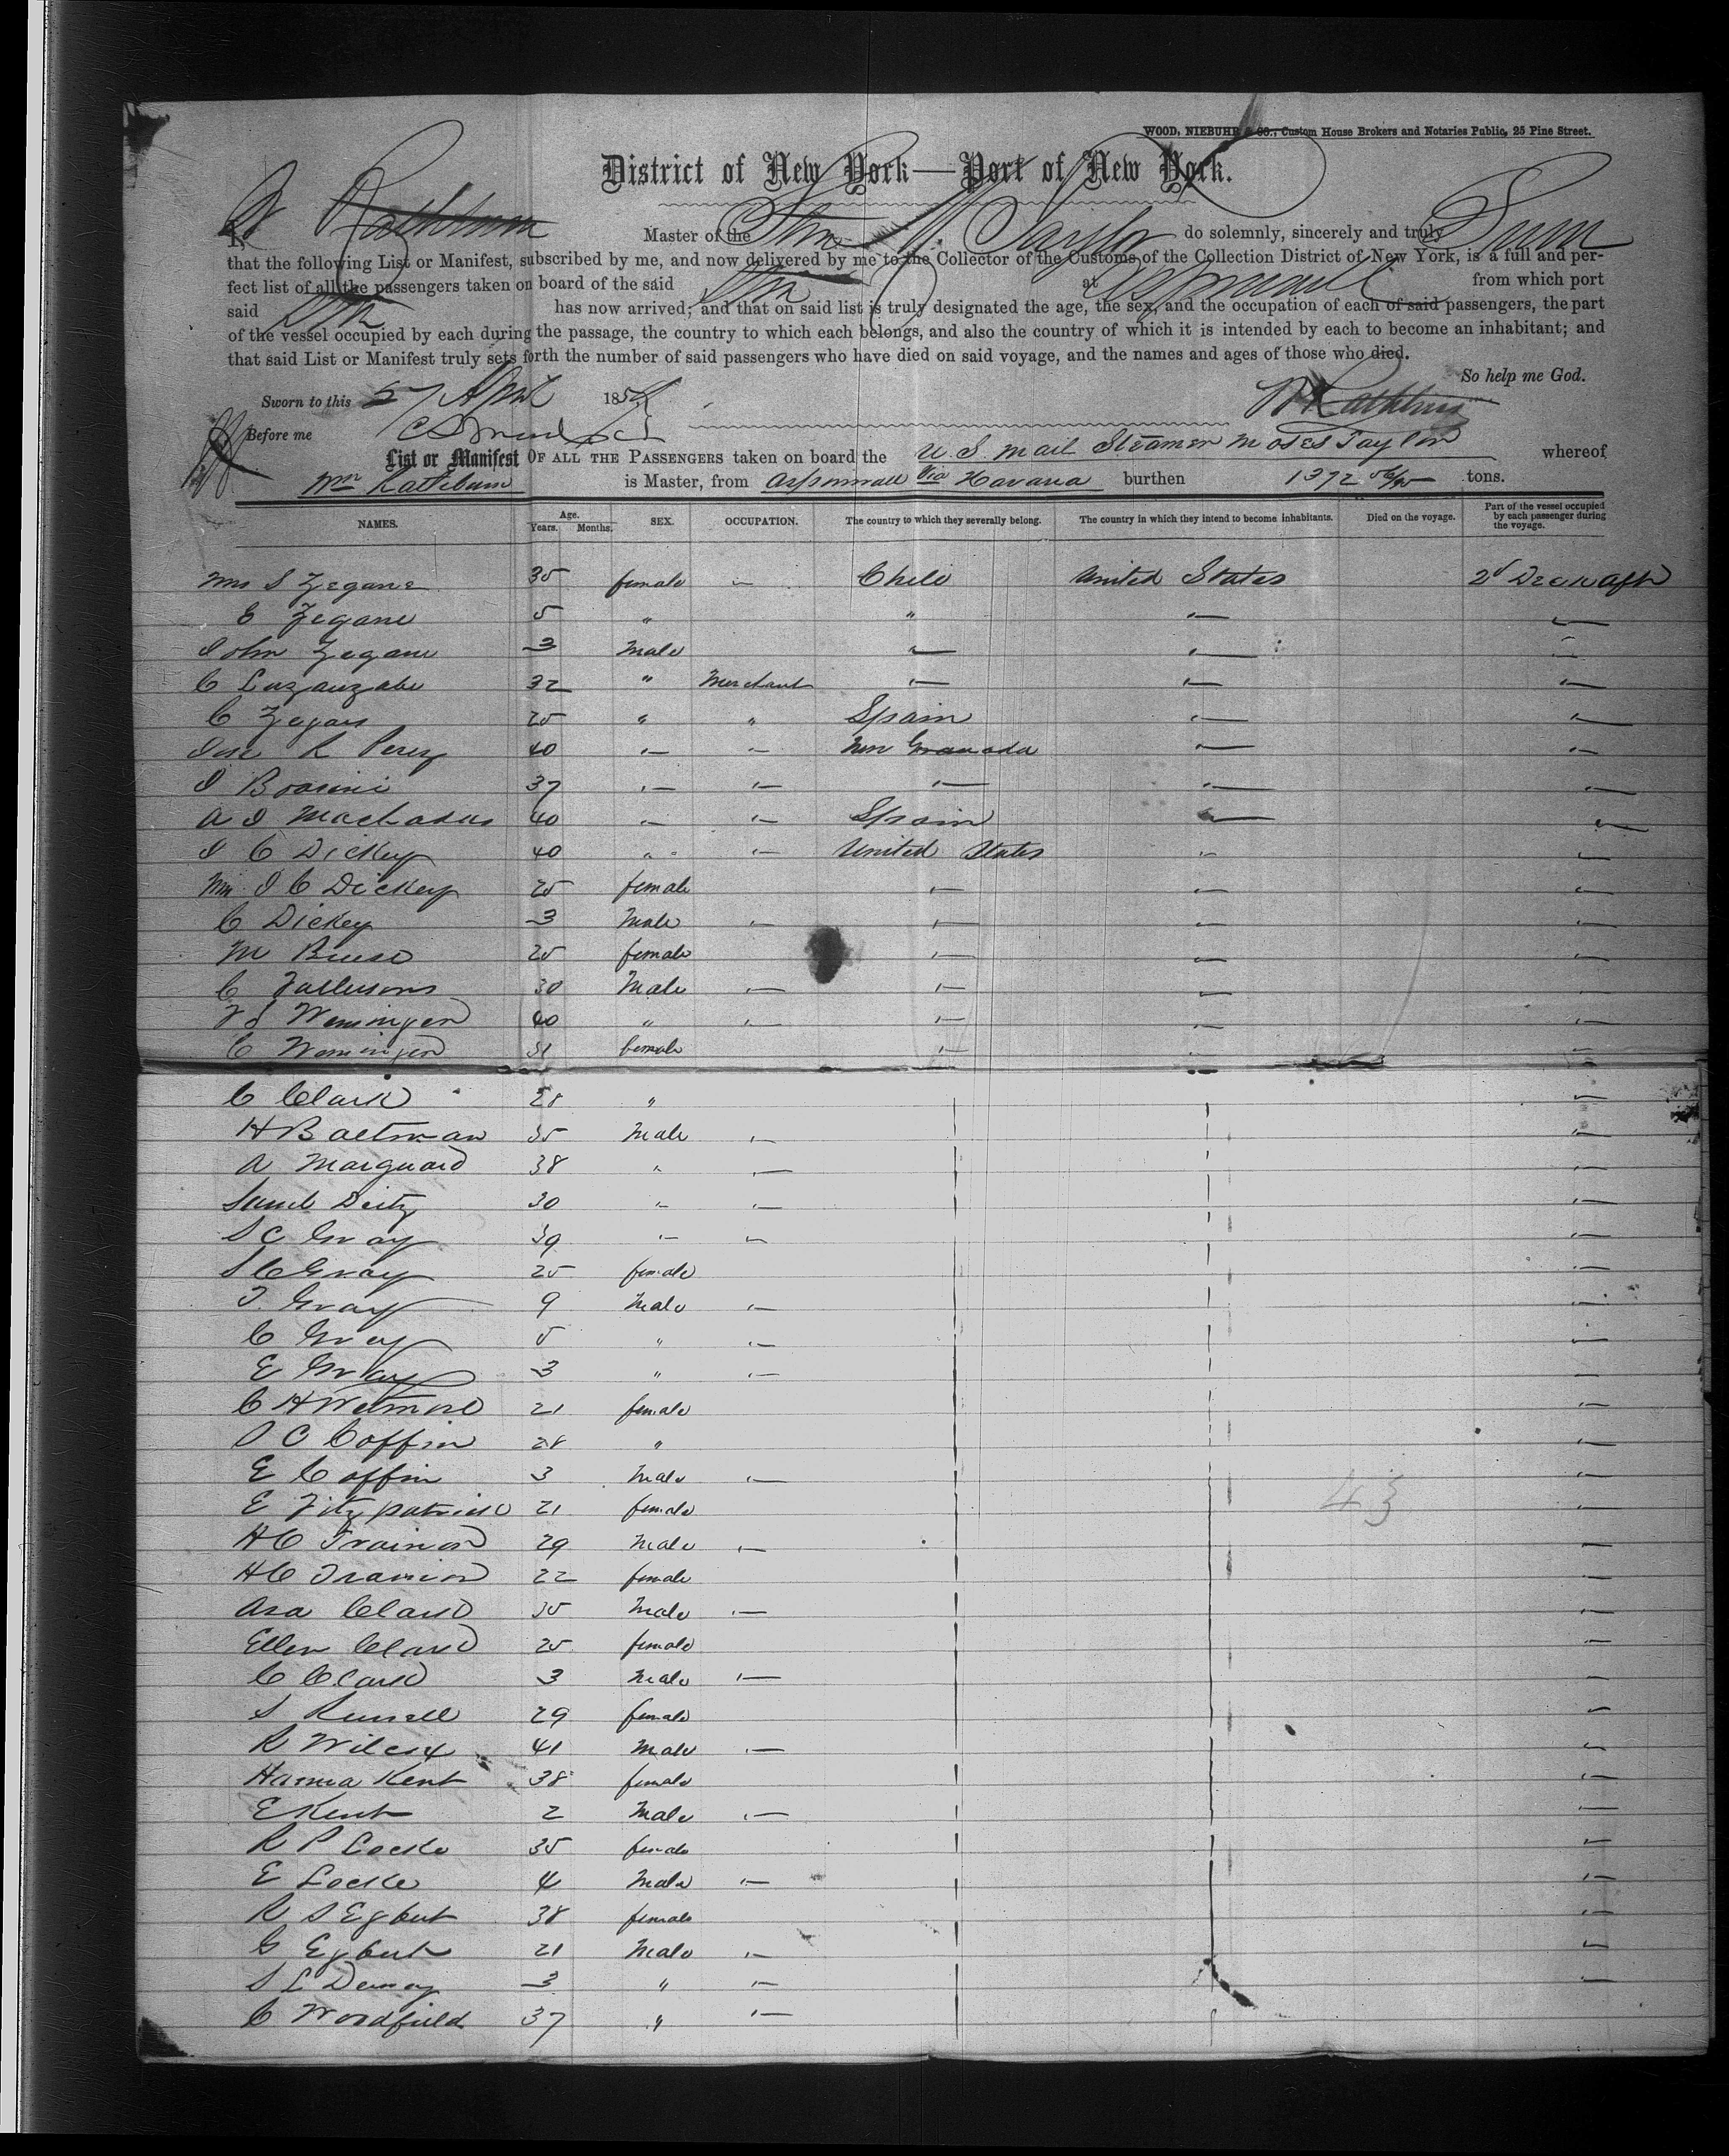 WOOD, NIEBUHR & CO., Custom House Brokers and Notaries Public, 25 Pine Street.
District of New York—Port of New York.
I, W Rathbun Master of the Stmr M. Taylor do solemnly, sincerely and truly Swear
that the following List or Manifest, subscribed by me, and now delivered by me to the Collector of the Customs of the Collection District of New York, is a full and per-
fect list of all the passengers taken on board of the said Stmr at Aspinwall from which port
said Stmr has now arrived; and that on said list is truly designated the age, the sex, and the occupation of each of said passengers, the part
of the vessel occupied by each during the passage, the country to which each belongs, and also the country of which it is intended by each to become an inhabitant; and
that said List or Manifest truly sets forth the number of said passengers who have died on said voyage, and the names and ages of those who died.
So help me God.
Sworn to this 27 April 185 W Rathbun
Before me
List or Manifest OF ALL THE PASSENGERS taken on board the U. S. Mail Steamer Moses Taylor whereof
Wm Rathbun is Master, from Aspinwall via Havana burthen 1372 56/95 tons.
NAMES. Age. Years. Months. SEX. OCCUPATION. The country to which they severally belong. The country in which they intend to become inhabitants. Died on the voyage. Part of the vessel occupied by each passenger during the voyage.
Mrs S Zegane 35 female Chile United States 2d Deck Aft
E Zegane 5 " "
John Zegane 3 Male
C 32 " Merchant
C 25 " " Spain
Jose R Perez 40 New Granada
J 37
A J Machados 40 Spain
J C Dickey 40 " United States
Mrs J C Dickey 25 female
C Dickey 3 Male
M 25 female
C 30 Male
40 "
C 31 female
C Clark 28 "
H Baltman 35 Male
A Marquard 38 "
Saml Deitz 30
S C Gray 39
S C Gray 25 female
J. Gray 9 Male
C Gray 5 "
E Gray 3 "
C H Wetmore 21 female
S C Coffin 28 "
E Coffin 3 Male
E Fitzpatrick 21 female
H C Trainor 29 Male
H C Trainor 22 female
Asa Clark 35 Male
Ellen Clark 25 female
C Clark 3 Male
S Russell 29 female
R Wilcox 41 Male
Hanna Kent 38 female
E Kent 2 Male
R P Locke 35 female
E Locke 4 Male
R S Egbert 38 female
G Egbert 21 Male
S L 3 "
C Woodfield 37 "
43